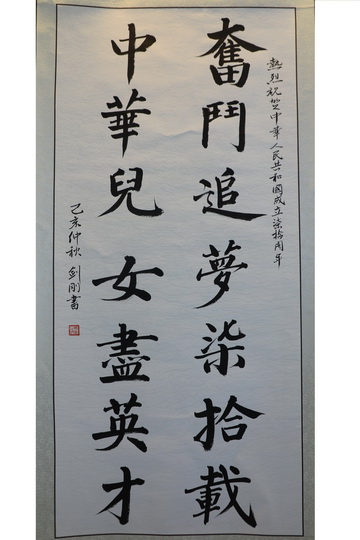 熱烈祝贺中華人民共和國成立柒拾周年
奮鬥追夢柒拾載
中華兒女盡英才
己亥仲秋 劍剛書